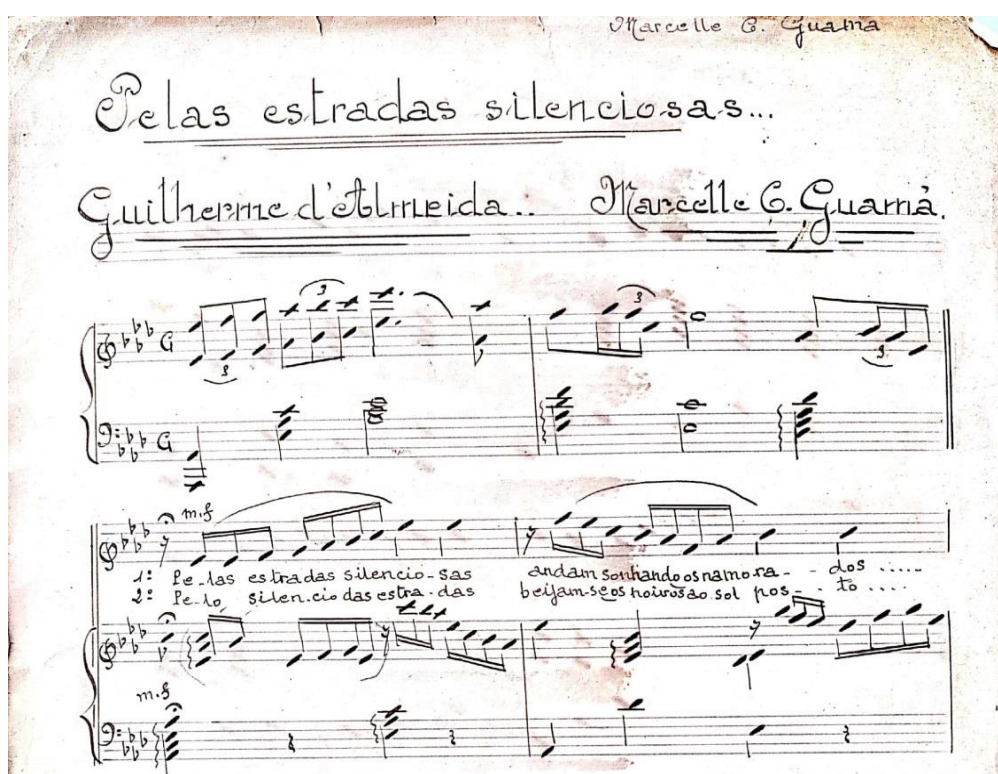 Marcelle C. Guamá
Pelas estradas silenciosas...
Guilherme d'Almeida.. Marcelle C. Guamá.
3 3 3
3 3
m.f
1ª Pe-las estradas silencio-sas andam sonhando os namora- - dos .....
2ª Pe-lo silen.cio das estra-das beijam-se os noivos ao sol pos - - to ....
m.f